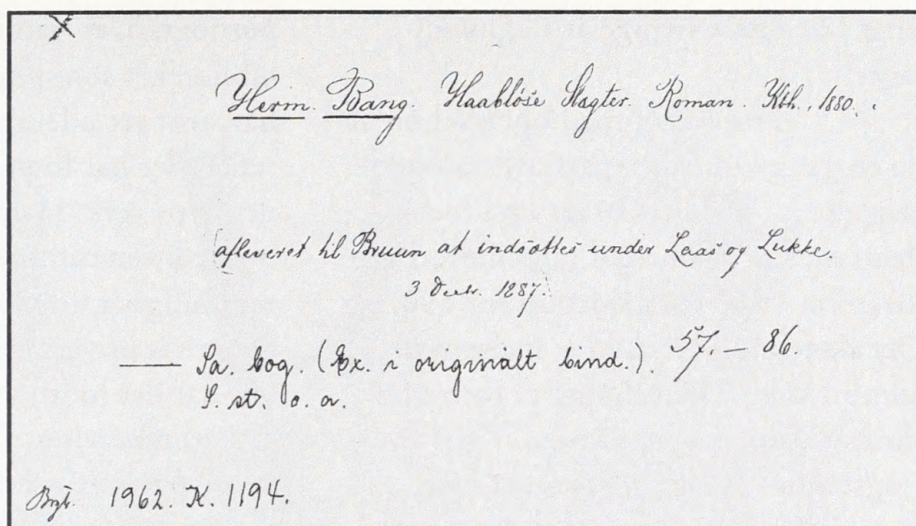 Herm. Bang. Haabløse Slægter. Roman. Kbh., 1880.
afleveret til Bruun at indsættes under Laas og Lukke.
3 Decbr. 1887.
— Sa. bog. (Ex. i originalt bind.). 57. — 86.
S. st. o. a.
1962. K. 1194.